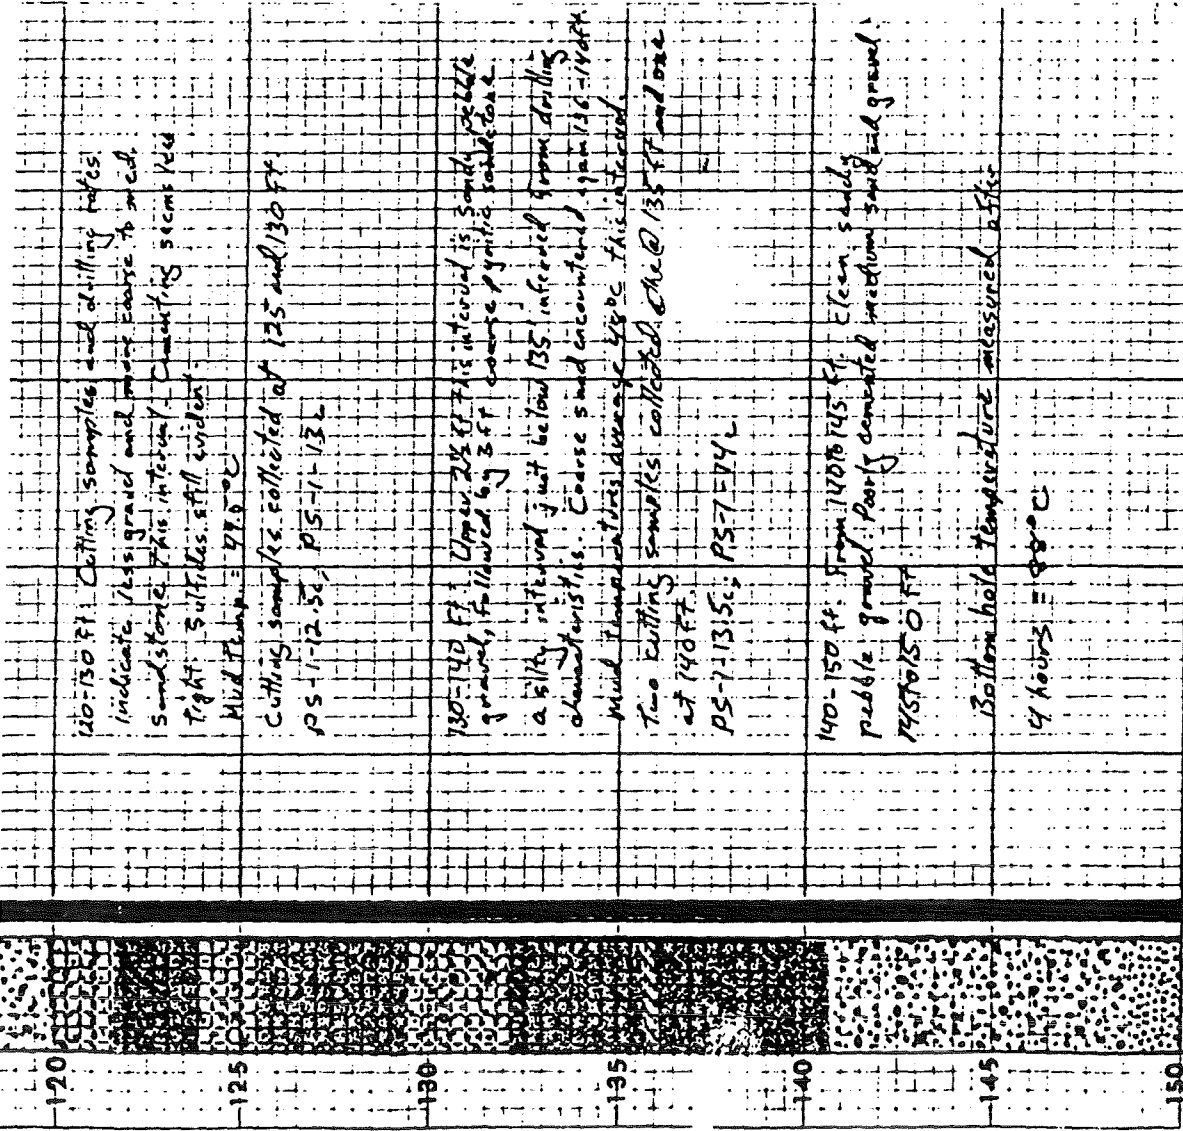 120-130 ft: Cutting samples and drilling rates
indicate less gravel and more coarse to med.
sandstone this interval - Cementing seems less
tight. Sulfides still evident.
Mud Temp. =
Cutting samples collected at 125 and 130 ft.
PS-1-12.5c; PS-1-13c
130-140 ft: Upper 2½ ft this interval is sandy pebble
gravel, followed by 3 ft coarse pyritic sandstone
a silty interval just below 135' inferred from drilling
characteristics. Coarse sand encountered again 136-140ft.
Mud temperatures average 48°C this interval
Two cutting samples collected. One @ 135 ft and one
at 140 ft.
PS-1-13.5c; PS-1-14c
140-150 ft. From 140 to 145 ft. Clean sandy
pebble gravel. Poorly cemented medium sand and gravel
145 to 150 ft
Bottom hole temperature measured after
4 hours = 88°C
120
125
130
135
140
145
150